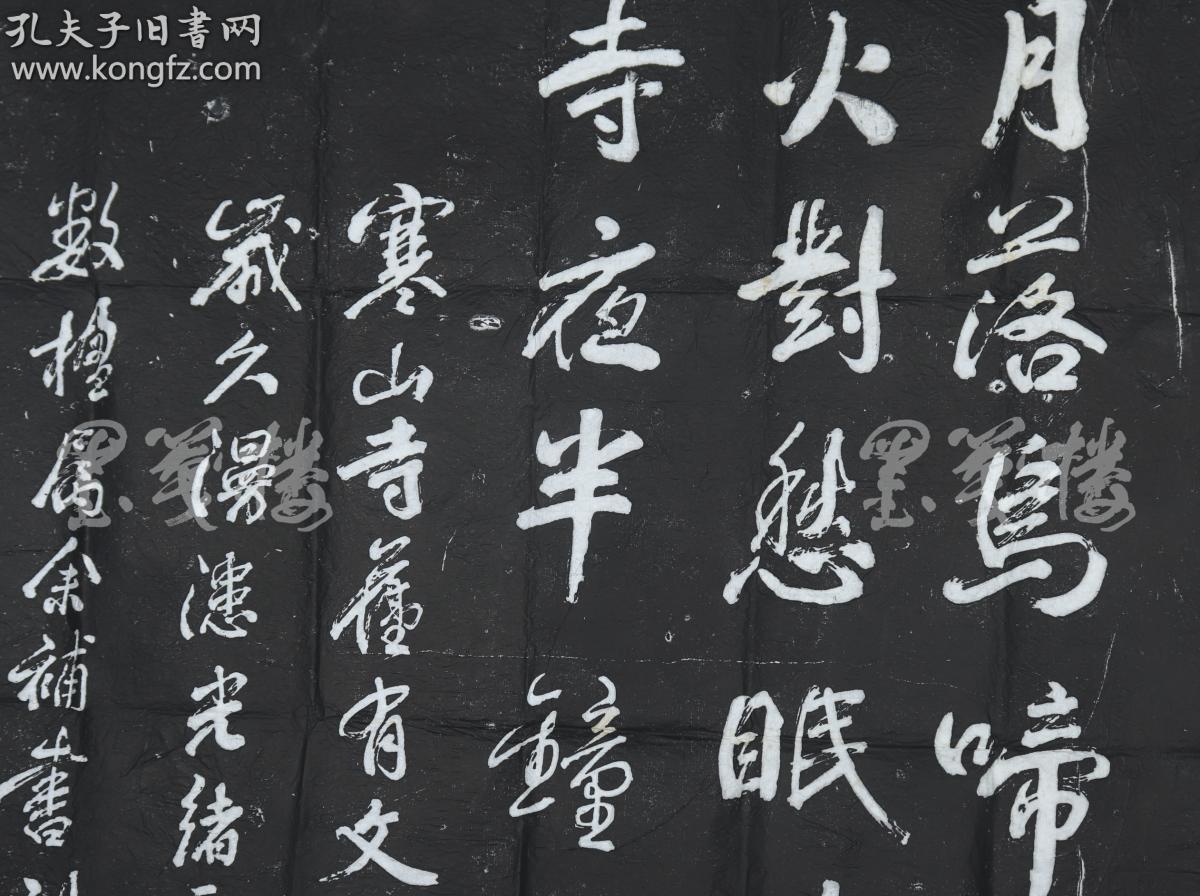 孔夫子旧書网
www.kongfz.com
月落烏啼
火對愁眠
寺夜半鐘
寒山寺舊有文
歲久漫漶光緒
數楹屬余補書
墨笺楼
墨笺楼